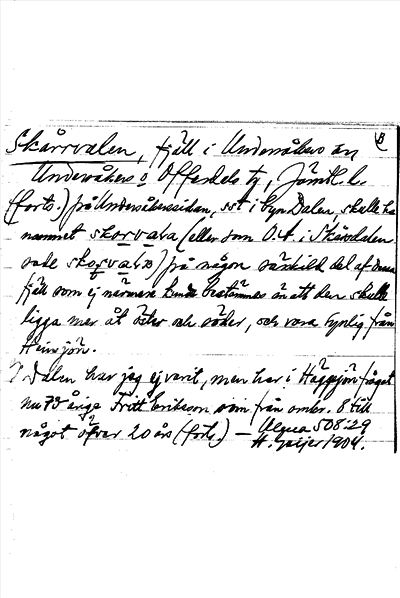 Skårrvalen, fjäll i Undersåkers sn B
Undersåkers o Offerdals tg, Jämtl. l.
(forts.) på Undersåkerssidan, sst i byn Dalen, skulle ha
namnet skorvala (eller som O.A. i Skärdalen
sade skorvala) på någon särskild del af denna
fjäll som ej närmare kunde bestämmas än att den skulle
ligga mer åt öster och söder, och vara synlig från
Hensjön.
I Dalen har jag ej varit, men har i Häggsjön frågat
nu 70 årige Fritt Eriksson som från omkr. 8 till
något öfver 20 års (forts.) — Ulqua 508:29
H. Geijer 1904.